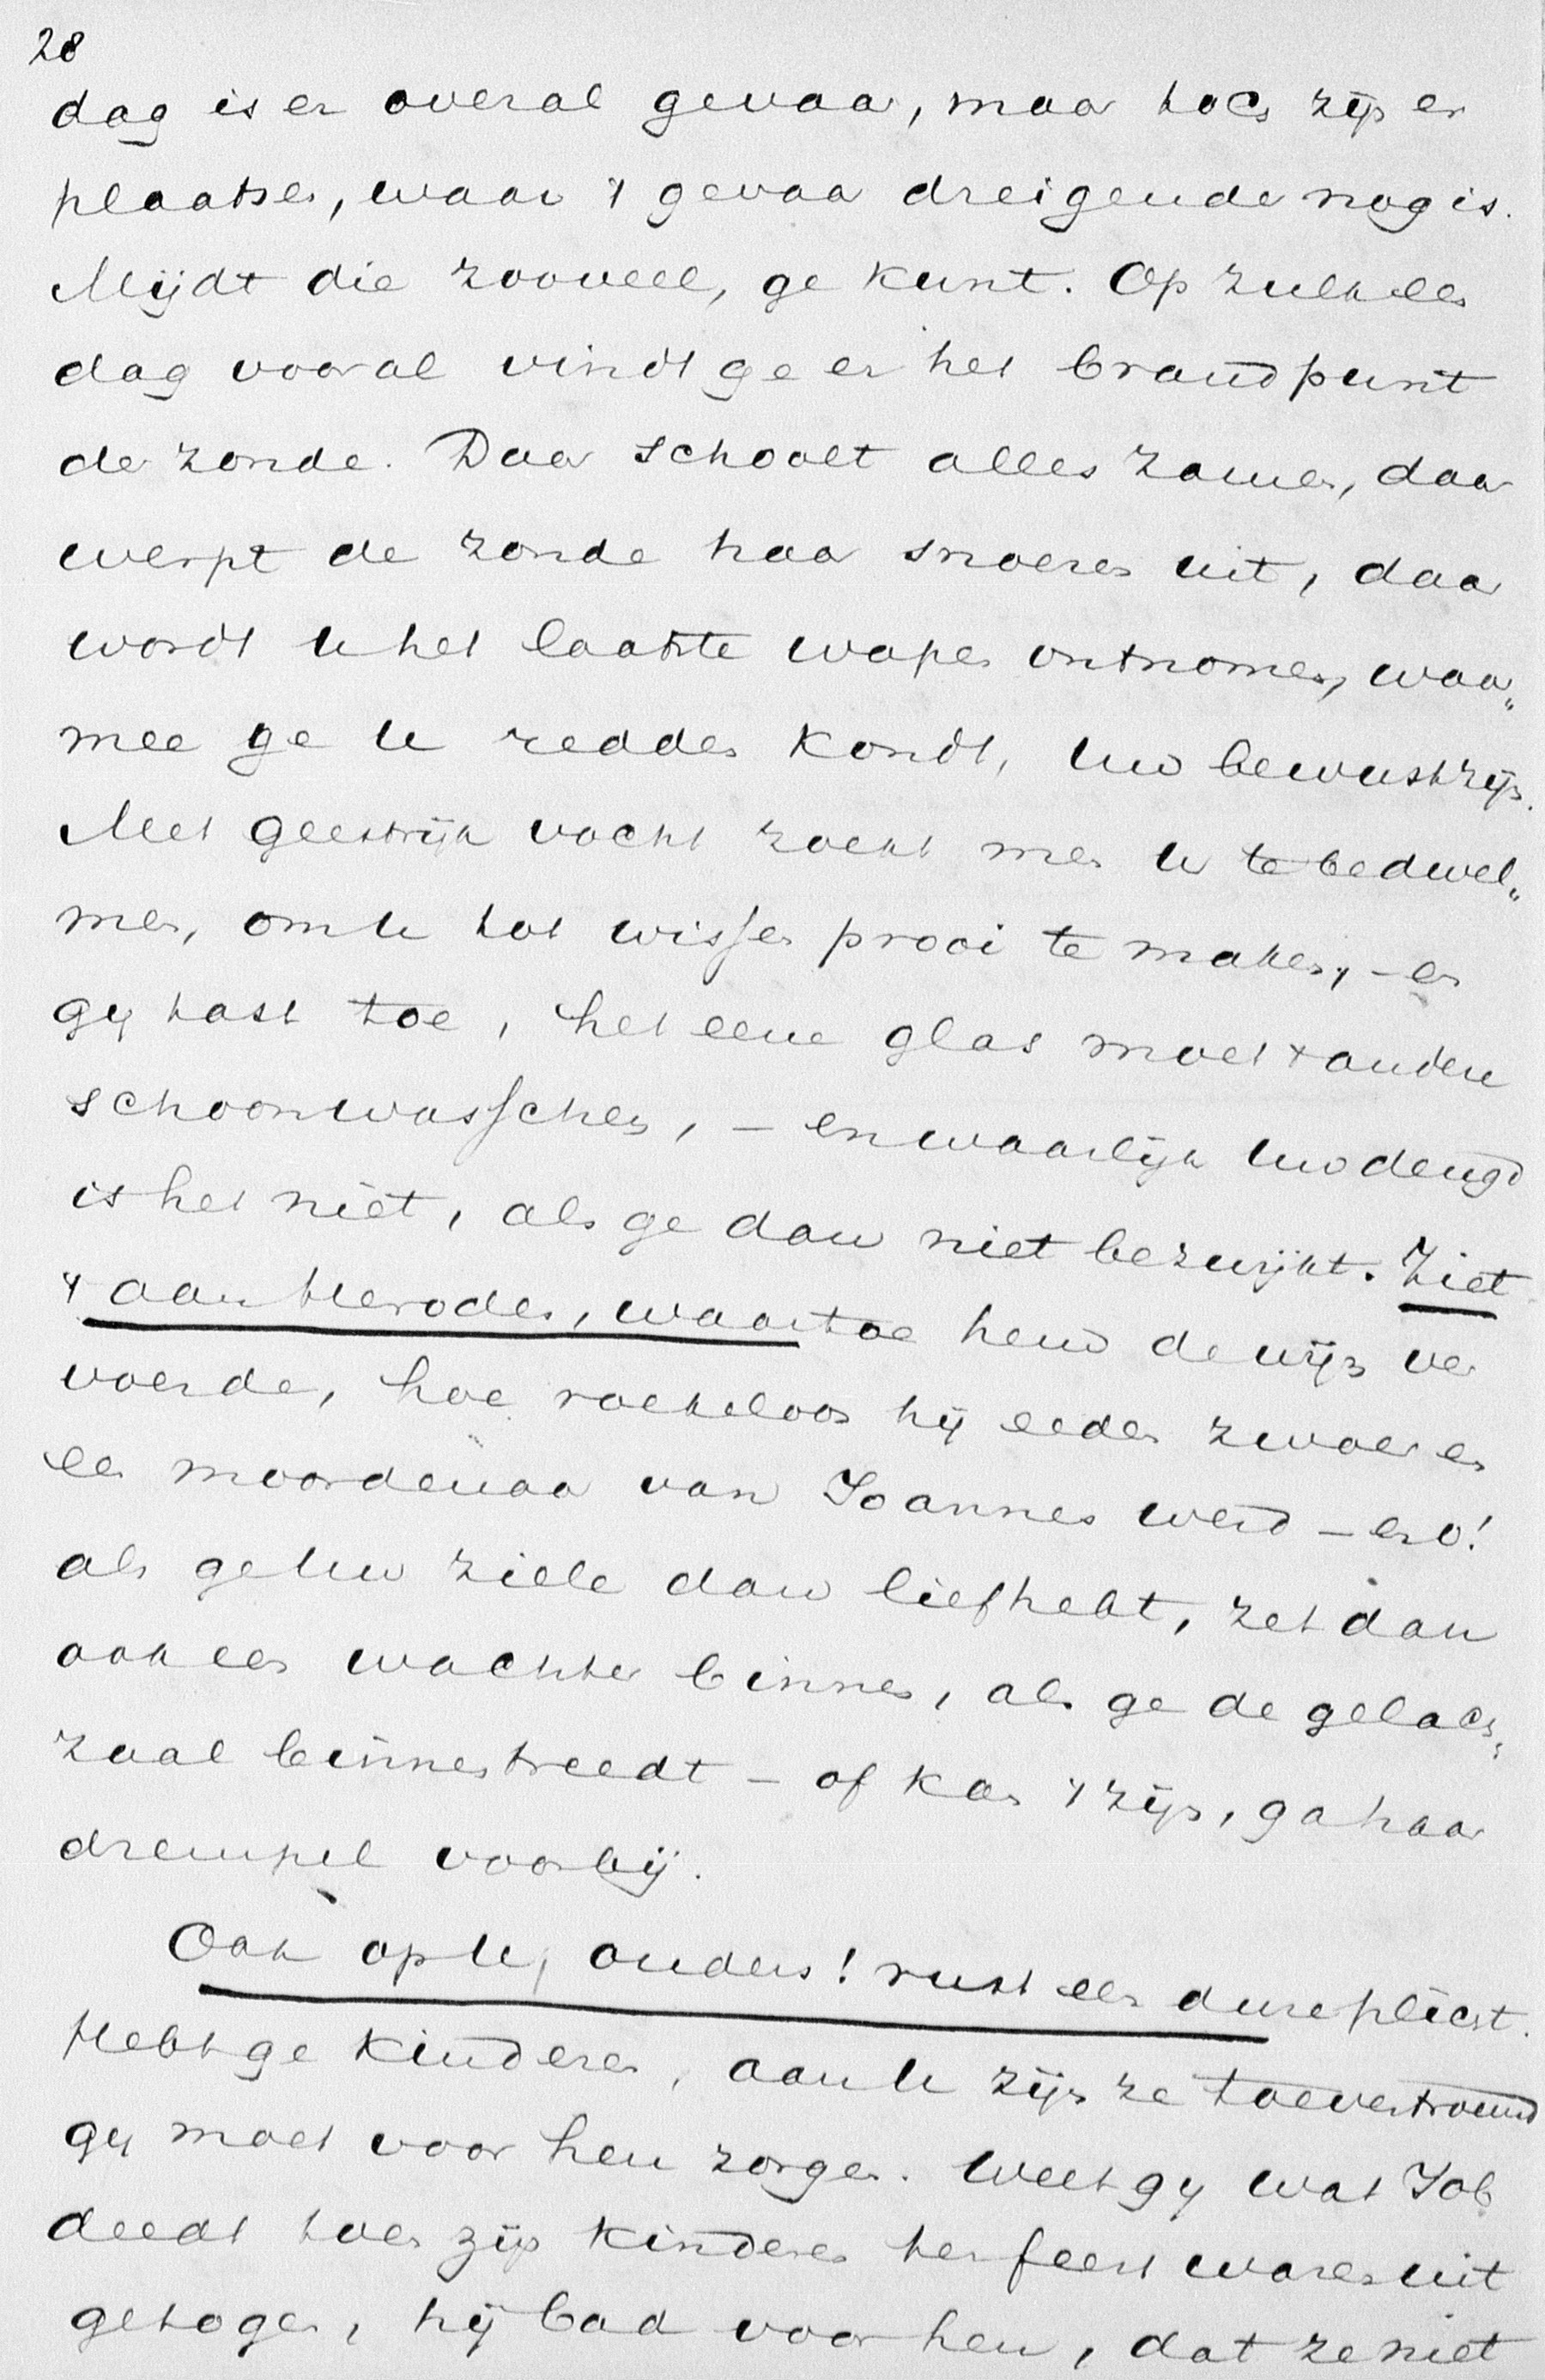 28
dag is er overal gevaar, maar toch zijn er
plaatsen, waar 't gevaar dreigender nog is.
Mijdt die zooveel, ge kunt. Op zulk een
dag vooral vindt ge er het brandpunt
der zonde. Daar schoolt alles zamen, daar
werpt de zonde haar snoeren uit, daar
wordt u het laatste wapen ontnomen, waar„
mee ge u redden kondt, uw bewustzijn.
Met geestrijk vocht zoekt men u te bedwel„
men, om u tot wissen prooi te maken, – en
gij tast toe, het eene glas moet 't andere
schoonwasschen, – en waarlijk uw deugd
is het niet, als ge dan niet bezwijkt. Ziet
't aan Herodes, waartoe hem de wijn ver
voerde, hoe roekeloos hij eeden zwoer en
een moordenaar van Joannes werd – en o!
als ge uw ziele dan liefhebt, zet dan
ook een wachter binnen, als ge de gelach„
zaal binnentreedt – of kan 't zijn, ga haar
drempel voorbij.
Ook op u, ouders! rust een dure plicht.
Hebt ge kinderen, aan u zijn ze toevertrouwd
gij moet voor hen zorgen. Weet gij wat Job
deedt toen zijn kinderen ten feest waren uit
getogen, hij bad voor hen, dat ze niet